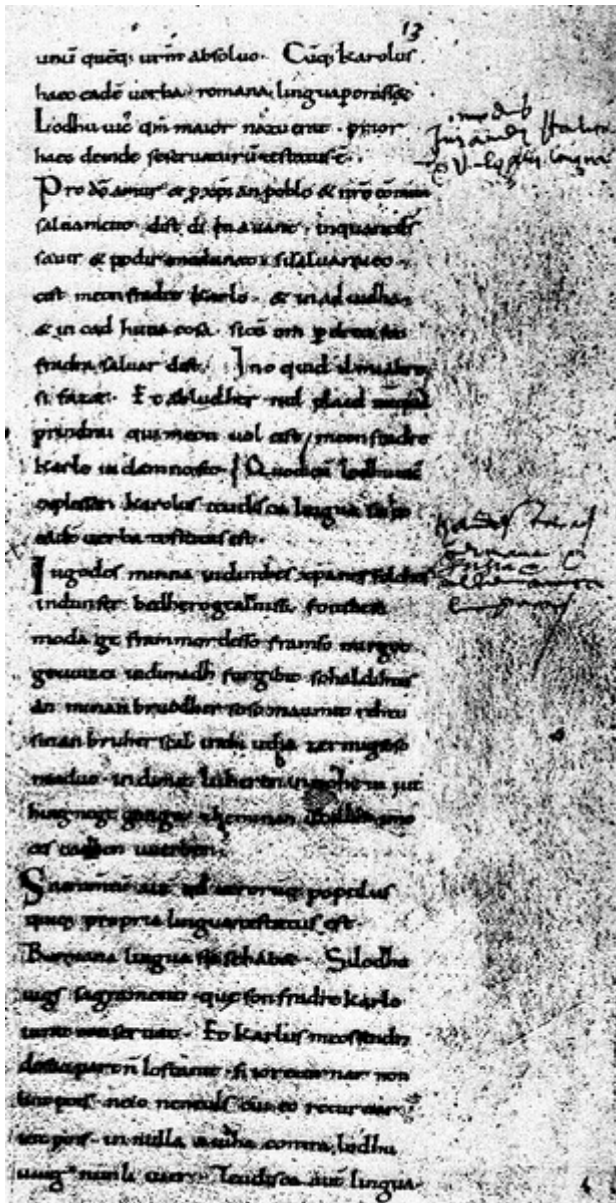 13
unũ quẽq; urm̃ absoluo. Cũq; karolus
haec eadẽ uerba romana lingua perorass&
Lodhuuic qm̃ maior natu erat prior
haec deinde seseruaturũ testatus ẽ.
Pro dõ amur & p xp̃ian poblo & nrõ cõmun
saluament. dist di in auant. inquant d̃s
sauir & podir medunat. sisaluaraieo.
cist meon fradre Karlo. & in adiudha.
& in cad huna cosa. sicũ om p dreit son
fradra saluar dist. Ino quid il mialtre
si faz&. Et abludher nul plaid nũquã
prindrai qui meon uol cist meon fradre
Karle in damno sit. Quod cũ lodhuuic
explesset. karolus teudisca lingua sic hec
eadẽ uerba testatus est.
Ingodes minna indinthes xpãnes folches
indunser bedhero gealtnissi. fonthese
moda ge frammordesso framso mirgot
geuuizci indimadh furgibit sohaldihtes
an minan bruodher soso manmit rehtu
sinan bruher scal inthi utha zermigsoso
maduo. indimit luheren innohein iut
hing nege gango. zheminan uuillon imo
ce scadhen uuerhen.
Sacramentũ autẽ qd utrorũq; populus
quiq; propria lingua testatus est.
Romana lingua sic se hab&. Silodhu
uigs sagrament. que son fradre karlo
iurat conseruat. Et karlus meossendra
desuo partñ lostanit. si ioreturnar non
lint pois. neio neneuls cui eo returnar
int pois. in nulla aiudha contra lodhu
uuig nunli iuer. Teudisca autẽ lingua.